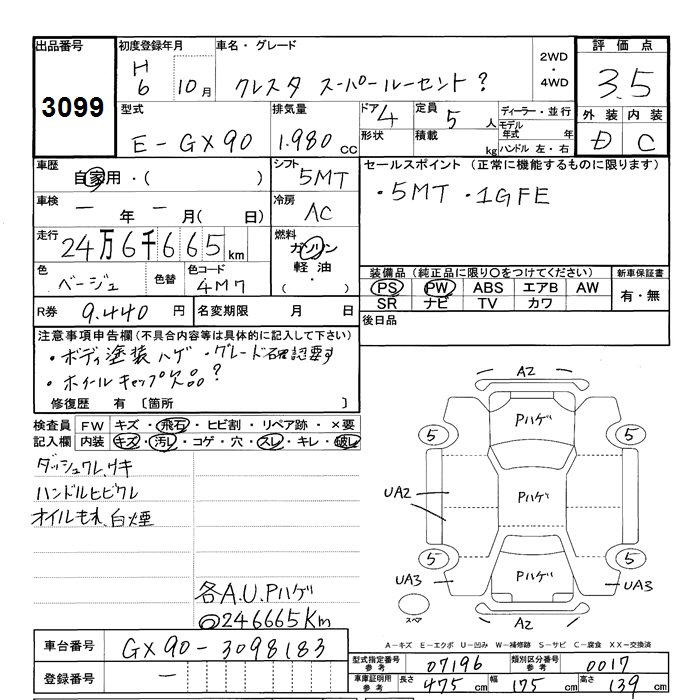 出品番号 初度登録年月 車名・グレード 2WD・4WD 評価点
3099 H6 10月 クレスタ スーパールーセント? 3.5
型式 排気量 ドア 4 定員 5人 ディーラー・並行 外装 内装
E-GX90 1.980cc 形状 積載 kg モデル年式 年 ハンドル 左・右 D C
車歴 自家用・( ) シフト 5MT セールスポイント (正常に機能するものに限ります)
・5MT ・1GFE
車検 ー年ー月(日) 冷房 AC
走行 24万6千665km 燃料 ガソリン 軽油 ( ・ )
色 ベージュ 色替 色コード 4M7 装備品(純正品に限り○をつけてください) 新車保証書
PS PW ABS エアB AW 有・無
SR ナビ TV カワ
R券 9.440円 名変期限 月 日 後日品
注意事項申告欄(不具合内容等は具体的に記入して下さい)
・ボディ塗装ハゲ ・グレード確認要す
・ホイールキャップ欠品?
修復歴 有 〔箇所 〕
検査員記入欄 FW キズ・飛石・ヒビ割・リペア跡・×要
内装 キズ・汚レ・コゲ・穴・スレ・キレ・破レ
ダッシュワレ、ウキ
ハンドルヒビワレ
オイルもれ、白煙
各A.U.Pハゲ
246665Km
A2
Pハゲ
5 5
UA2 Pハゲ
5 5
UA3 Pハゲ UA3
スペア A2
A-キズ E-エクボ U-凹み W-補修跡 S-サビ C-腐食 XX-交換済
車台番号 GX90-3098183
型式指定番号 参考 07196 類別区分番号 参考 0017
登録番号 ー
車庫証明用 参考 長さ 475cm 幅 175cm 高さ 139cm